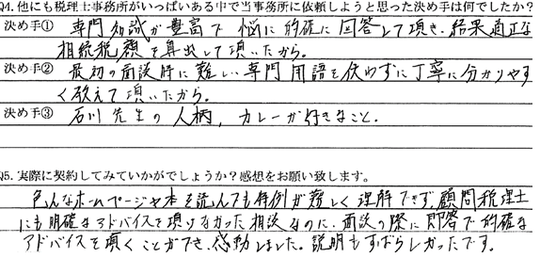 Q4.他にも税理士事務所がいっぱいある中で当事務所に依頼しようと思った決め手は何でしたか?
決め手① 専門知識が豊富で悩に的確に回答して頂き、結果適正な
相続税額を算出して頂いたから。
決め手② 最初の面談時に難しい専門用語を使わずに丁寧に分かりやす
く教えて頂いたから。
決め手③ 石川先生の人柄、カレーが好きなこと。
Q5.実際に契約してみていかがでしょうか?感想をお願い致します。
色んなホームページや本を読んでも特例が難しく理解できず、顧問税理士
にも明確なアドバイスを頂けなかった相談なのに、面談の際に即答で的確な
アドバイスを頂くことができ、感動しました。説明もすばらしかったです。